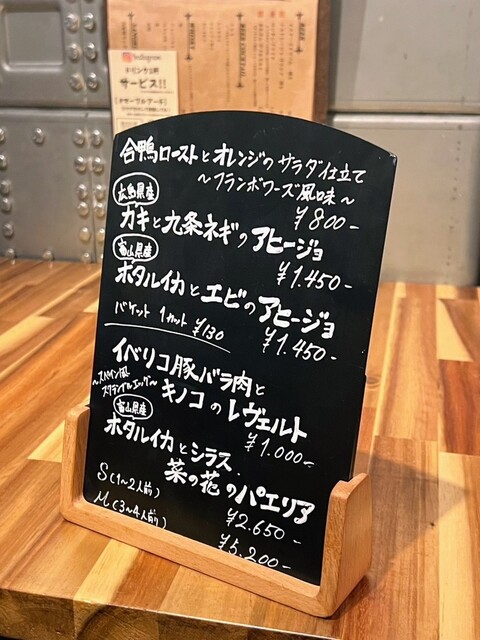 Instagram
ドリンク1杯
サービス!!
WHISKY
BEER COCKTAIL
BEER
合鴨ローストとオレンジのサラダ仕立て
〜フランボワーズ風味〜
¥800-
広島県産
カキと九条ネギのアヒージョ
¥1.450-
富山県産
ホタルイカとエビのアヒージョ
¥1.450-
バケット 1カット ¥130
イベリコ豚バラ肉と
〜スペイン風
スクランブルエッグ〜
キノコのレヴェルト
¥1.000-
富山県産
ホタルイカとシラス、
菜の花のパエリア
S(1〜2人前)
¥2.650-
M(3〜4人前)
¥5.200-